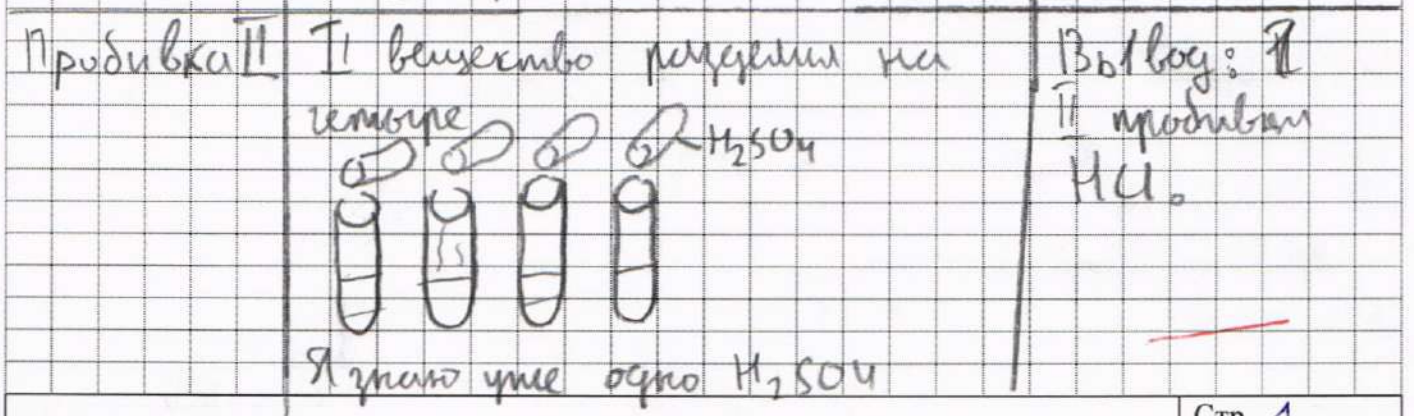 Пробивка II
II вещество разделил на
четыре
H₂SO₄
Я знаю уже одно H₂SO₄
Вывод: 1
II пробивки
HCl.
Стр. 1